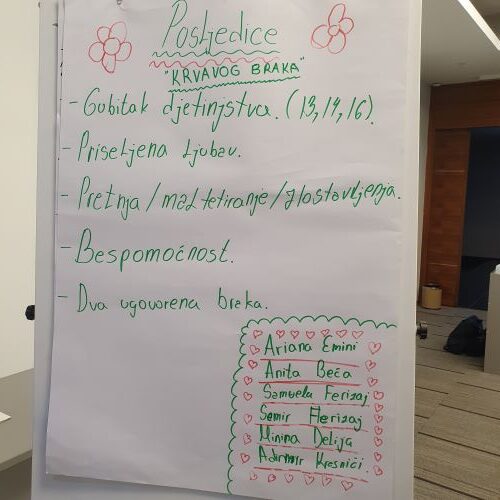 Posljedice
"KRVAVOG BRAKA"
- Gubitak djetinjstva. (13, 14, 16).
- Priseljena ljubav.
- Pretnja / maltetiranje / zlostavljenja.
- Bespomoćnost.
- Dva ugovorena breka.
Ariana Emini
Anita Beča
Samuela Ferizaj
Semir Ferizaj
Minina Delija
Kresnići.